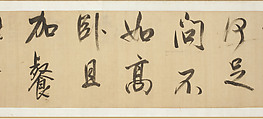 何足
問不
如高
卧且
加餐